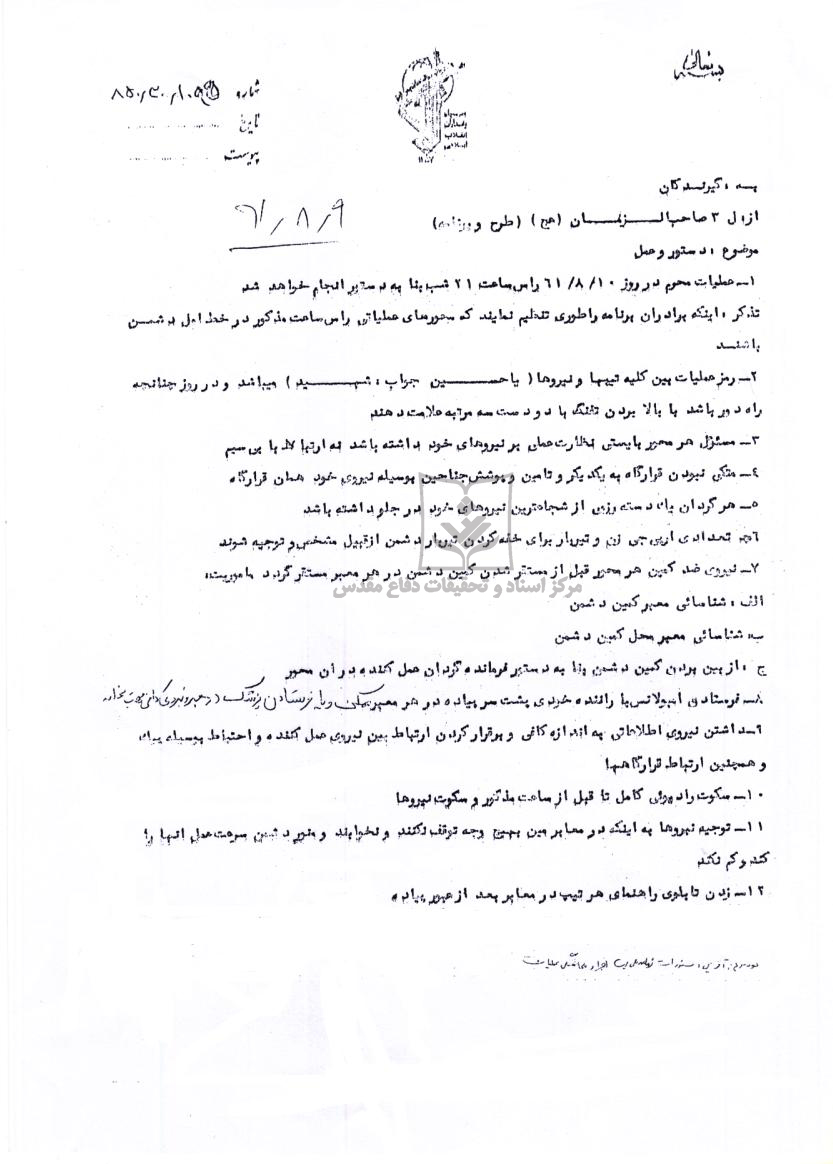 بسمه تعالی
شماره
تاریخ
پیوست
سپاه
پاسداران
انقلاب
اسلامی
به : گیرندگان
از : ل ۳ صاحب الـزمـان (عج) (طرح و برنامه)
۶۱/۸/۹
موضوع : دستور و عمل
۱ـ عملیات محرم در روز ۶۱/۸/۱۰ راس ساعت ۲۱ شب بنا به دستور انجام خواهد شد
تذکر : اینکه برادران برنامه را طوری تنظیم نمایند که محورهای عملیاتی راس ساعت مذکور در خط اول دشمـن
باشنـد
۲ـ رمز عملیات بین کلیه تیپها و نیروها ( یا حسـین جواب : شهـید ) میباشد و در روز چنانچه
راه دور باشد با بالا بردن تفنگ با دو دست سه مرتبه علامت دهند
۳ـ مسئول هر محور بایستی نظارت عملی بر نیروهای خود داشته باشد نه ارتباط با بی سیم
۴ـ متکی نبودن قرارگاه به یکدیگر و تامین و پوشش جناحین بوسیله نیروی خود همان قرارگاه
۵ـ هر گردان یک دسته رزمی از شجاعترین نیروهای خود در جلو داشته باشد
۶ـ تعدادی آرپی جی زن و تیربار برای خفه کردن تیربار دشمن از قبیل مشخص و توجیه شوند
۷ـ نیروی ضد کمین هر محور قبل از مستقر شدن کمین دشمن در هر معبر مستقر گردد ماموریت:
مرکز اسناد و تحقیقات دفاع مقدس
الف : شناسائی معبر کمین دشمن
ب: شناسائی معبر محل کمین دشمن
ج : از بین بردن کمین دشمن بنا به دستور فرمانده گردان عمل کننده در آن محور
۸ـ فرستادن آمبولانس با راننده خودی پشت سر پیاده در هر معبر
۹ـ داشتن نیروی اطلاعاتی به اندازه کافی و برقرار کردن ارتباط بین نیروی عمل کننده و احتیاط بوسیله پیک
و همچنین ارتباط قرارگاهها
۱۰ـ سکوت رادیوئی کامل تا قبل از ساعت مذکور و سکوت نیروها
۱۱ـ توجیه نیروها به اینکه در معابر مین بهیچ وجه توقف نکنند و نخوابند و منور دشمن سرعت عمل آنها را
کند و کم نکند
۱۲ـ زدن تابلوی راهنمای هر تیپ در معابر بعد از عبور پیاده